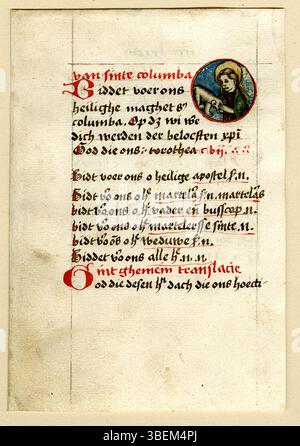 van sinte columba
Biddet voer ons
heilighe maghet s̄
columba. Op dz wi we
dich werden der beloeften xp̄i
God die ons: dorothea c bij. a a
Bidt voer ons o heilige apostel s̄. n.
Bidt vō ons o h̄ martelā s̄. n. martelās
bidt vō ons o h̄ vader eñ busscop. n.
bidt vō ons oh̄ martelersse sinte. n.
bidt vō ōs o h̄ weduwe s̄. n.
Biddet vō ons alle h̄. n. n
Sint ghemein translacie
God die desen h̄ dach die ons hoecti
alamy
Image ID: 3BEM4PJ
www.alamy.com